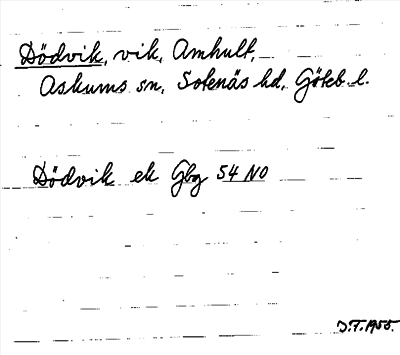 Dödvik, vik, Amhult,
Askums sn, Sotenäs hd, Göteb. l.
Dödvik ek Gbg 54 NO
D.T. 1955.